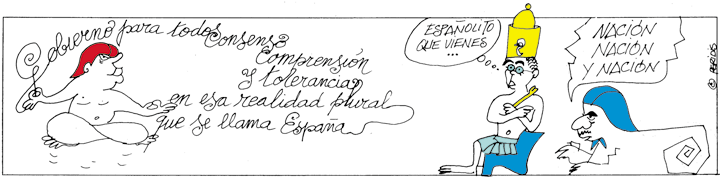 Gobierno para todos
Consenso
Comprensión
Y tolerancia
en esa realidad plural
que se llama España
ESPAÑOLITO
QUE VIENES
...
NACIÓN
NACIÓN
Y NACIÓN
© PERIDIS